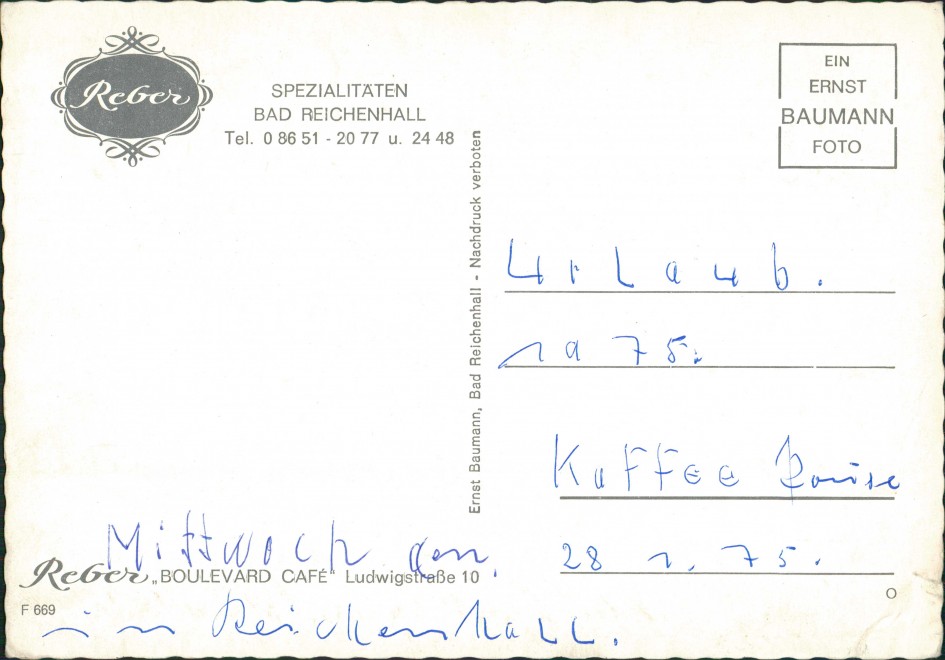 Reber
SPEZIALITÄTEN
BAD REICHENHALL
Tel. 0 86 51 - 20 77 u. 24 48
EIN
ERNST
BAUMANN
FOTO
Ernst Baumann, Bad Reichenhall - Nachdruck verboten
Urlaub.
1a 75.
Kaffee Pause
28 1. 75.
Mittwoch den.
Reber „BOULEVARD CAFÉ" Ludwigstraße 10
F 669
in Reichenhall.